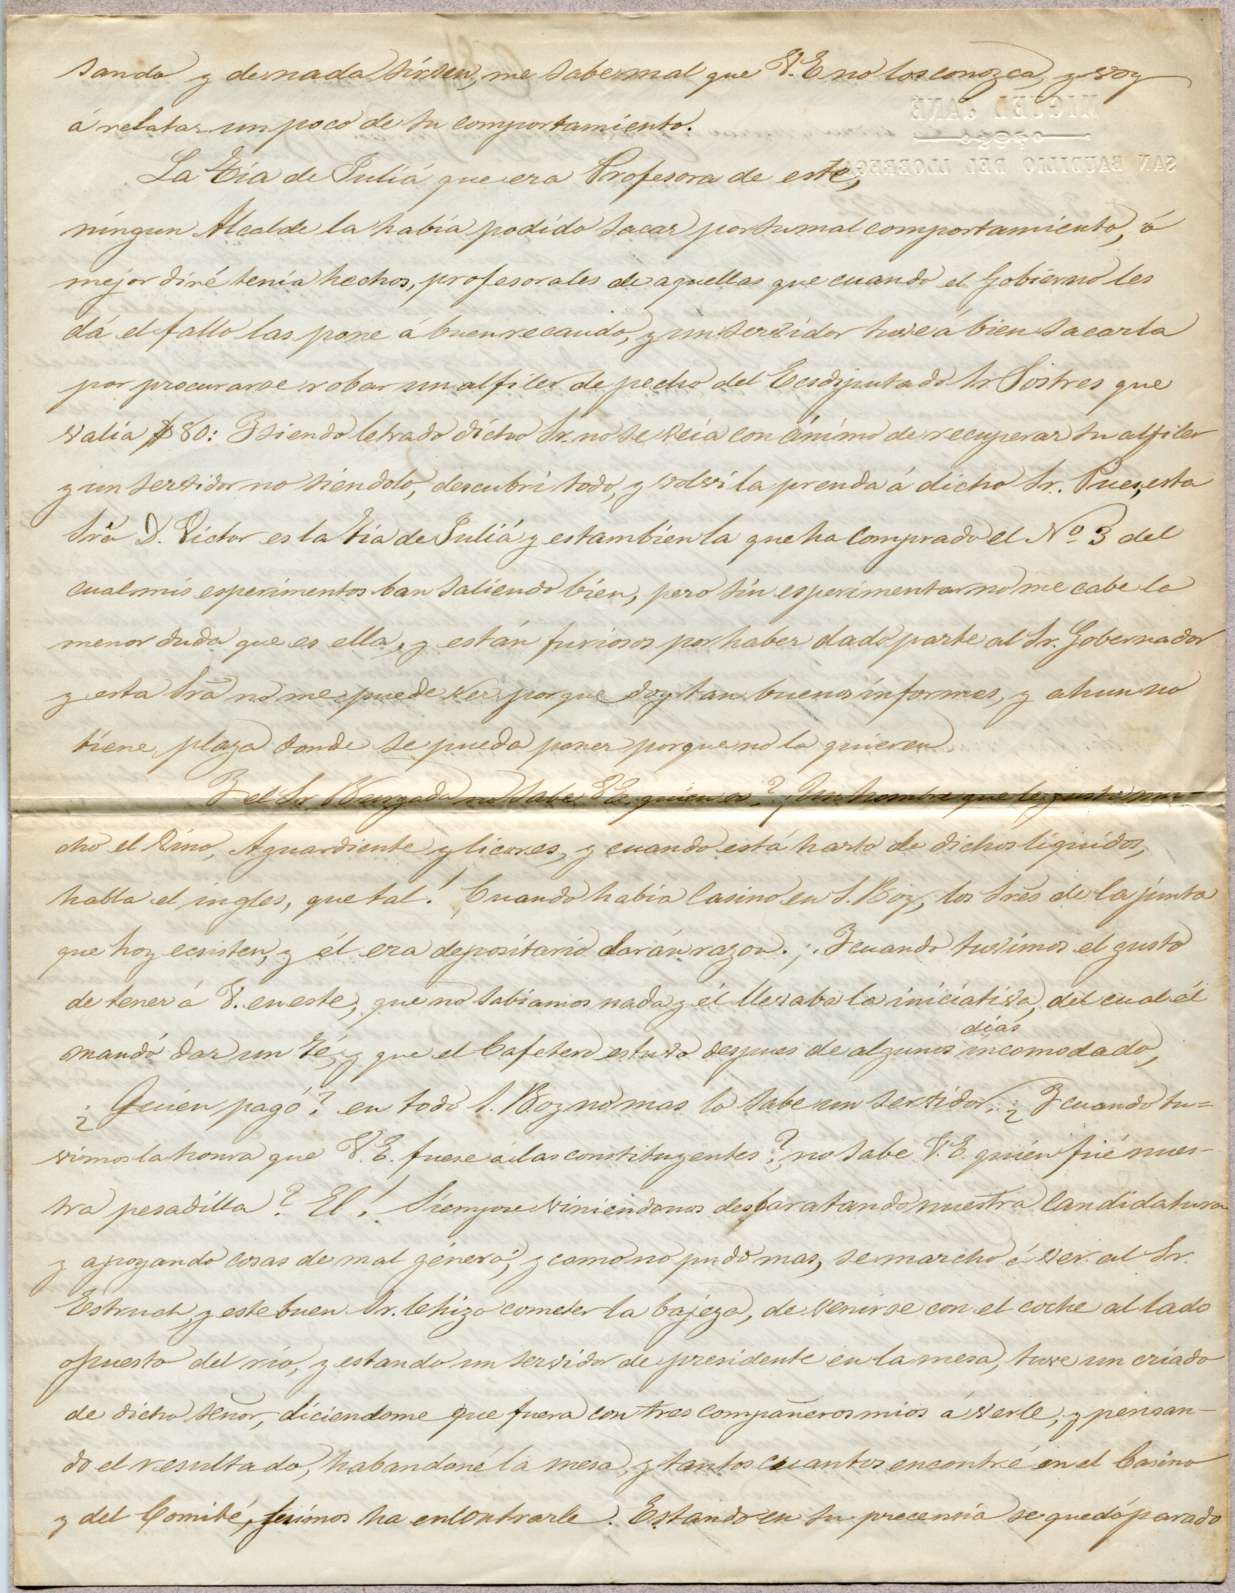 sando y de nada sírven, me sabe mal que V.E no los conozca, y voy
á relatar un poco de su comportamiento.
La Tía de Juliá que era Profesora de este,
ningun Alcalde la había podido sacar por su mal comportamiento, ó
mejor diré tenía hechos, profesorales de aquellas que cuando el Gobierno les
dá el fallo las pone á buen recaudo, y un servidor tuve á bien sacarla
por procurarse robar un alfiler de pecho del Ecsdiputado Sr Sostres que
valía $ 80: Y siendo letrado dicho Sr. no se veia con ánimo de recuperar su alfiler
y un servidor no siéndolo, descubrí todo, y volví la prenda á dicho Sr. Pues, esta
Srâ D. Victor es la Tia de Juliá y es tambien la que ha comprado el Nº 3 del
cual mis esperimentos ban saliendo bien, pero sin esperimentar no me cabe la
menor duda que es ella, y están furiosos por haber dado parte al Sr. Gobernador
y esta Srâ no me puede ver porque doy tan buenos informes, y ahun no
tiene plaza donde se pueda poner porque no la quieren
Y el Sr Burgada no sabe V.E. quien es? Un hombre que le gusta mu-
cho el Vino, Aguardiente y licores, y cuando está harto de dichos liquidos,
habla el ingles, que tal! Cuando había Casino en S. Boy, los Sres de la junta
que hoy ecsisten, y él era depositario darán razon. ¿Y cuando tuvimos el gusto
de tener á V. en este, que no sabiamos nada y él llevaba la iniciativa, del cual él
mandó dar un Té, y que el Cafetero estuvo despues de algunos días incomodado,
¿Quien pagó? en todo S. Boy no mas lo sabe un servidor. ¿Y cuando tu=
vimos la honra que V.E. fuese á las constituyentes? no sabe V.E. quién fué nues-
tra pesadilla? El! Siempre viniendonos desbaratando nuestra Candidatura
y apoyando cosas de mal género; y como no pudo mas, se marchó á ver al Sr.
Estruch, y este buen Sr. le hizo cometer la bajeza, de venirse con el coche al lado
opuesto del rio, y estando un servidor de presidente en la mesa, tuve un criado
de dicho señor, diciendome que fuera con tres compañeros mios á verle, y pensan-
do el resultado, habandoné la mesa, y tantos cuantos encontré en el Casino
y del Comité, fuimos ha encontrarle. Estando en su precencia se quedó parado